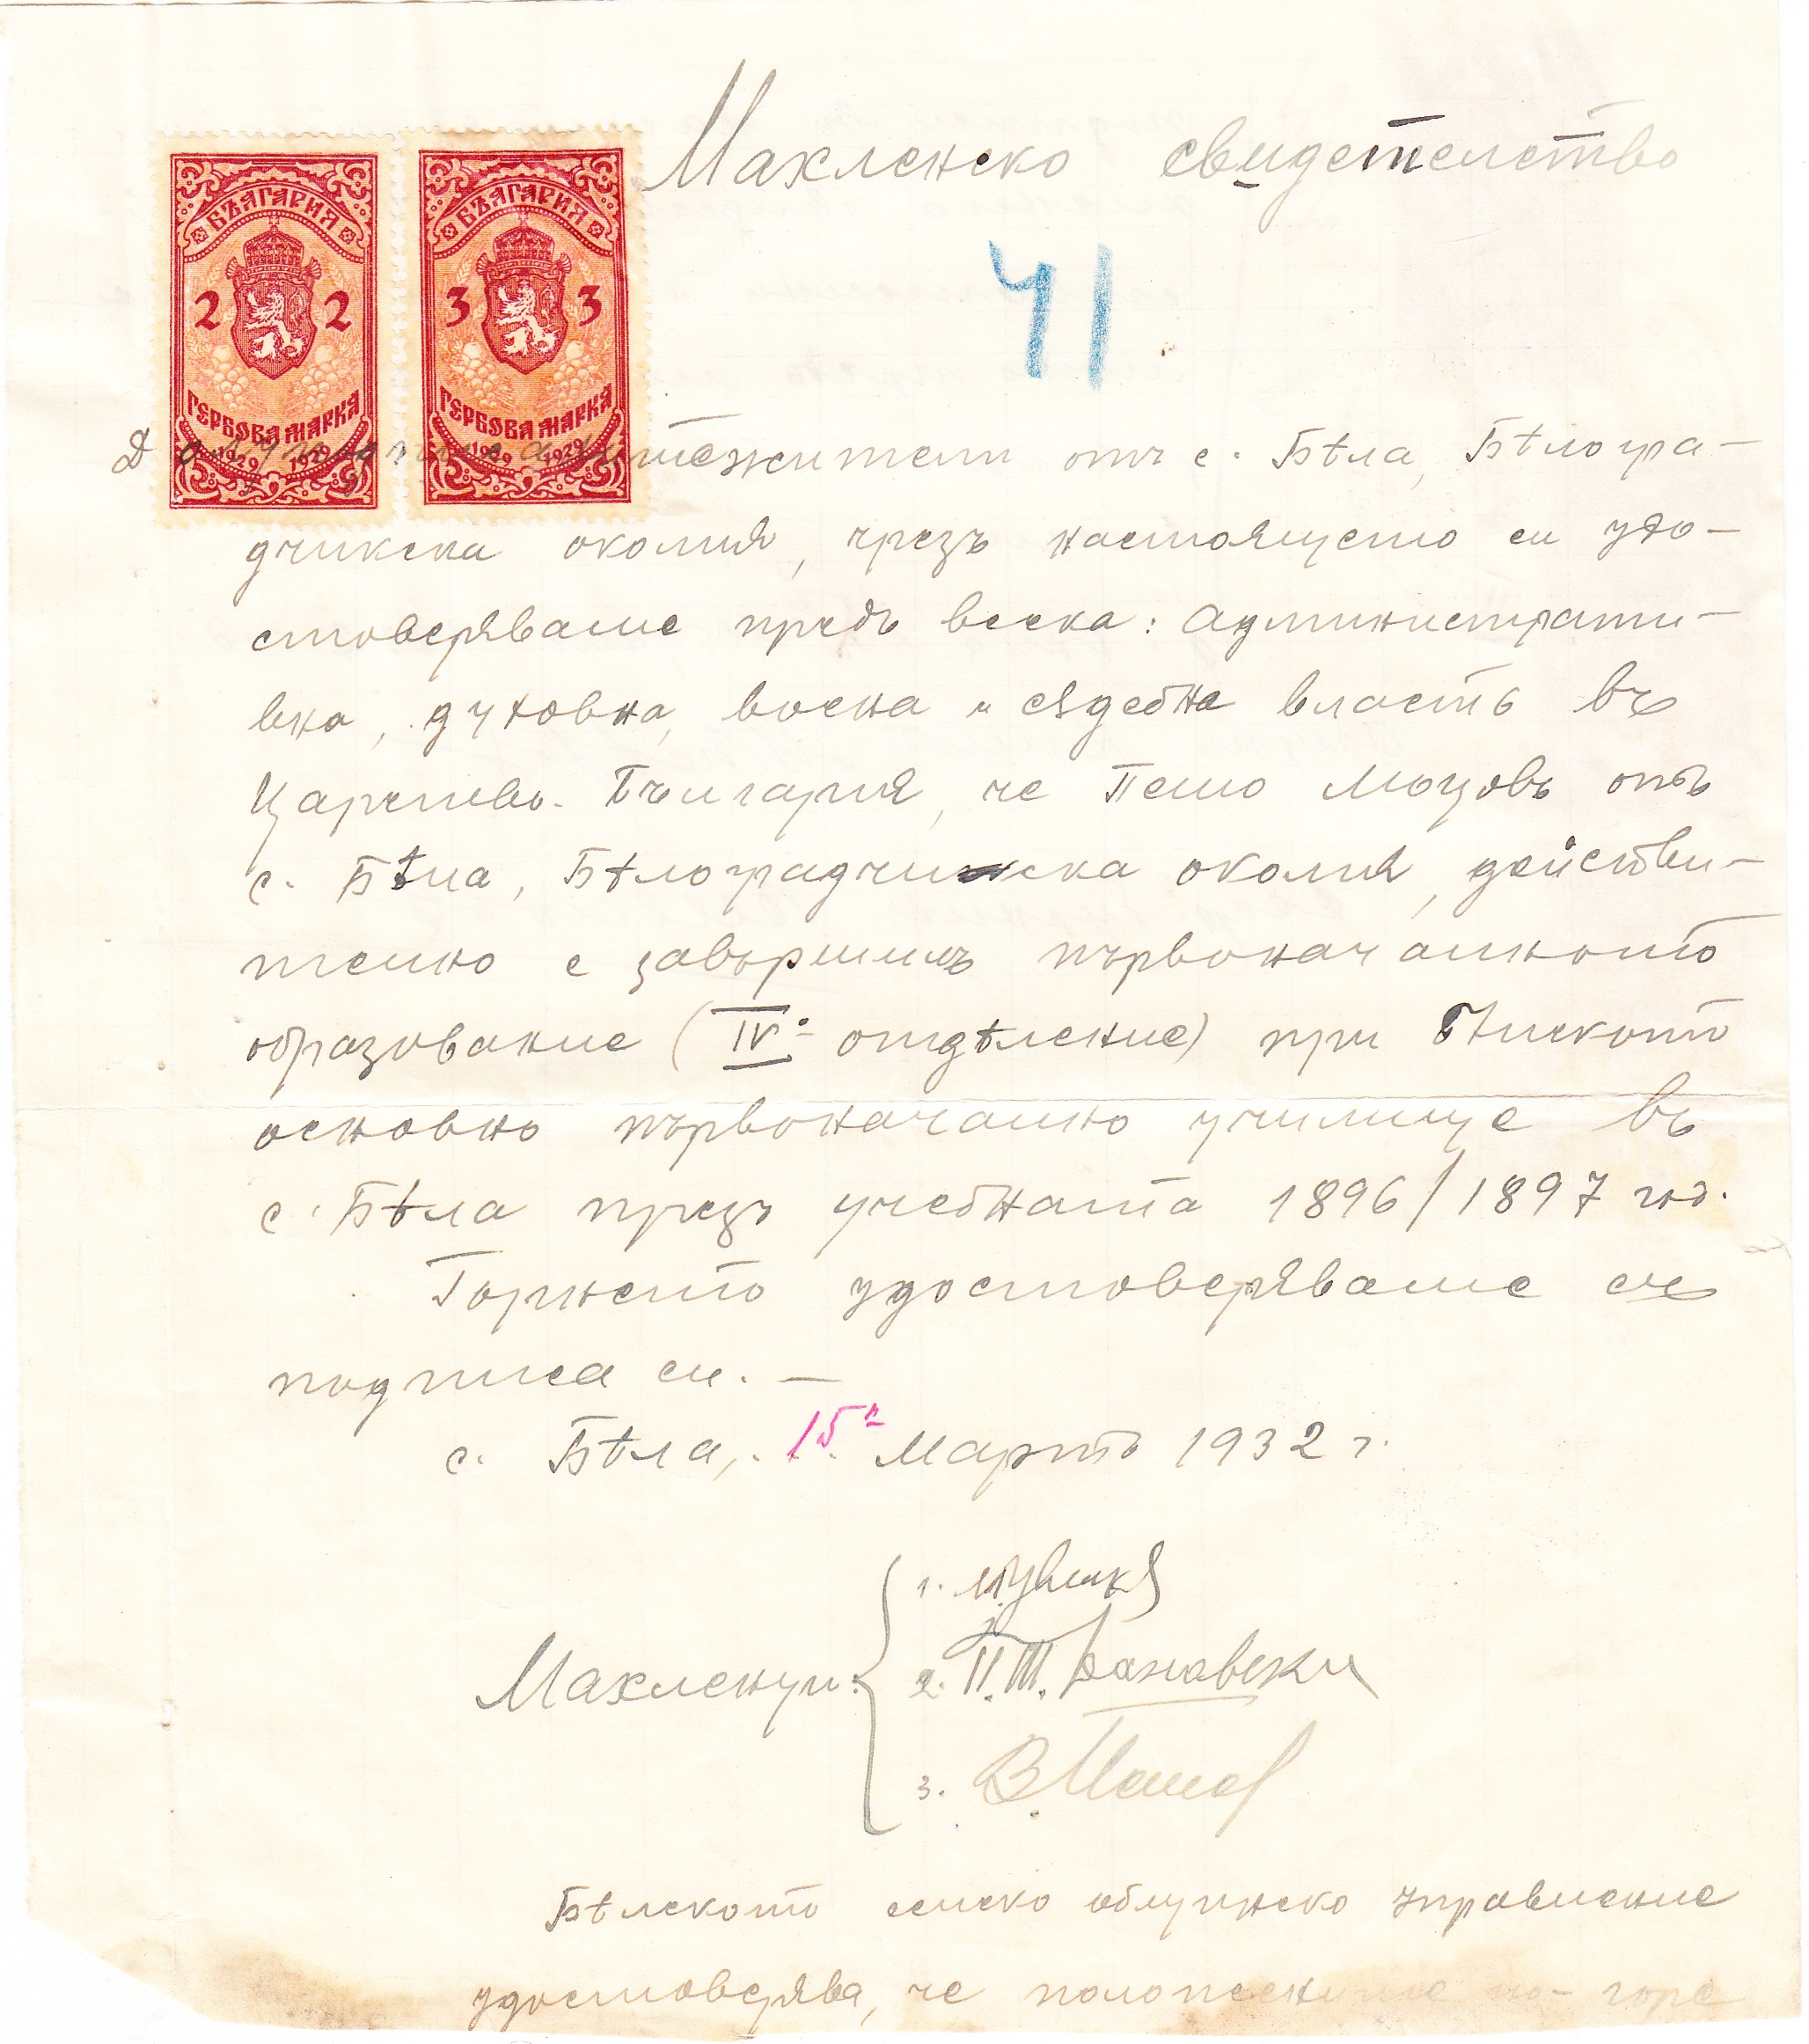 Махленско свидетелство
БЪЛГАРИЯ
2 2
ГЕРБОВА МАРКА
1929 1929
БЪЛГАРИЯ
3 3
ГЕРБОВА МАРКА
1929 1929
41
Долуподписаните жители отъ с. Бѣла, Бѣлогра-
дчикска околия, чрезъ настоящето си удо-
стоверяваме предъ всека: Администрати-
вна, духовна, военна и сѫдебна власть въ
Царство България, че Пешо Моцовъ отъ
с. Бѣла, Бѣлоградчикска околия, действи-
телно е завършилъ първоначалното
образование (IV- отдѣление) при Бѣлското
основно първоначално училище въ
с. Бѣла презъ учебната 1896/1897 год.
Горнето удостоверяваме съ
подписа си. —
с. Бѣла, 15й Мартъ 1932 г.
1.
Махленци: 2. П. Т.
3. В.
Бѣлското селско общинско управление
удостоверява, че положените по-горе